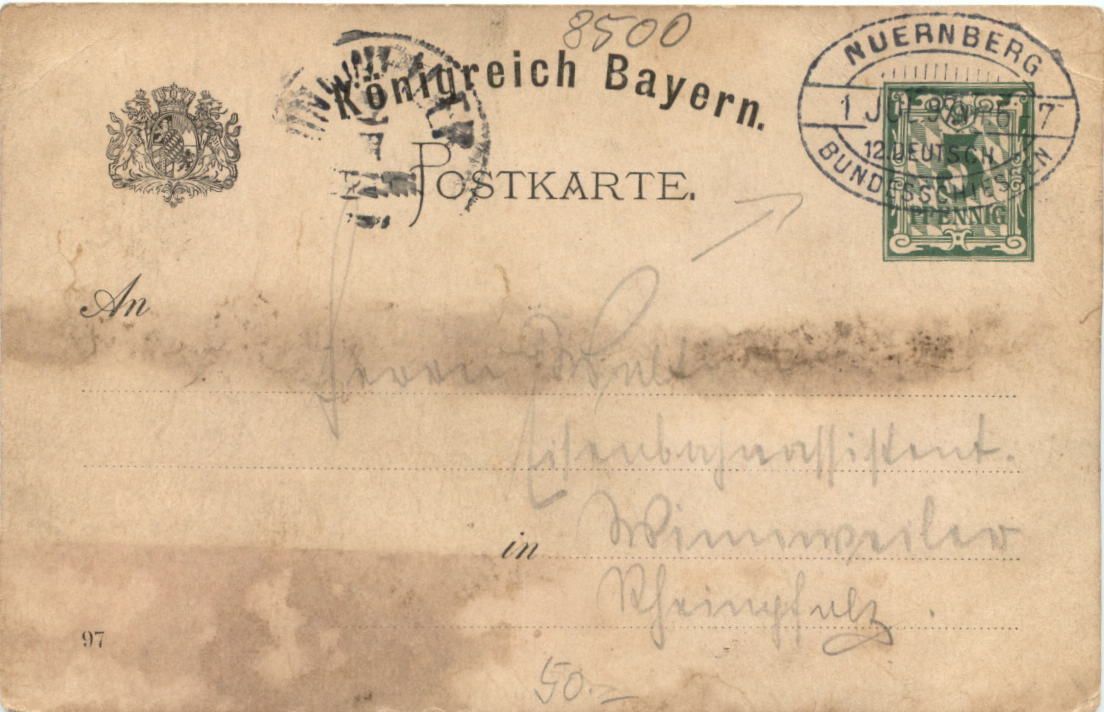 8500
Königreich Bayern.
POSTKARTE.
NUERNBERG
1 JUL 97
12. DEUTSCH
BUNDESSCHIESSEN
5
PFENNIG
An
Herrn
Eisenbahnassistent.
in Winnweiler
Rheinpfalz.
97
50.–